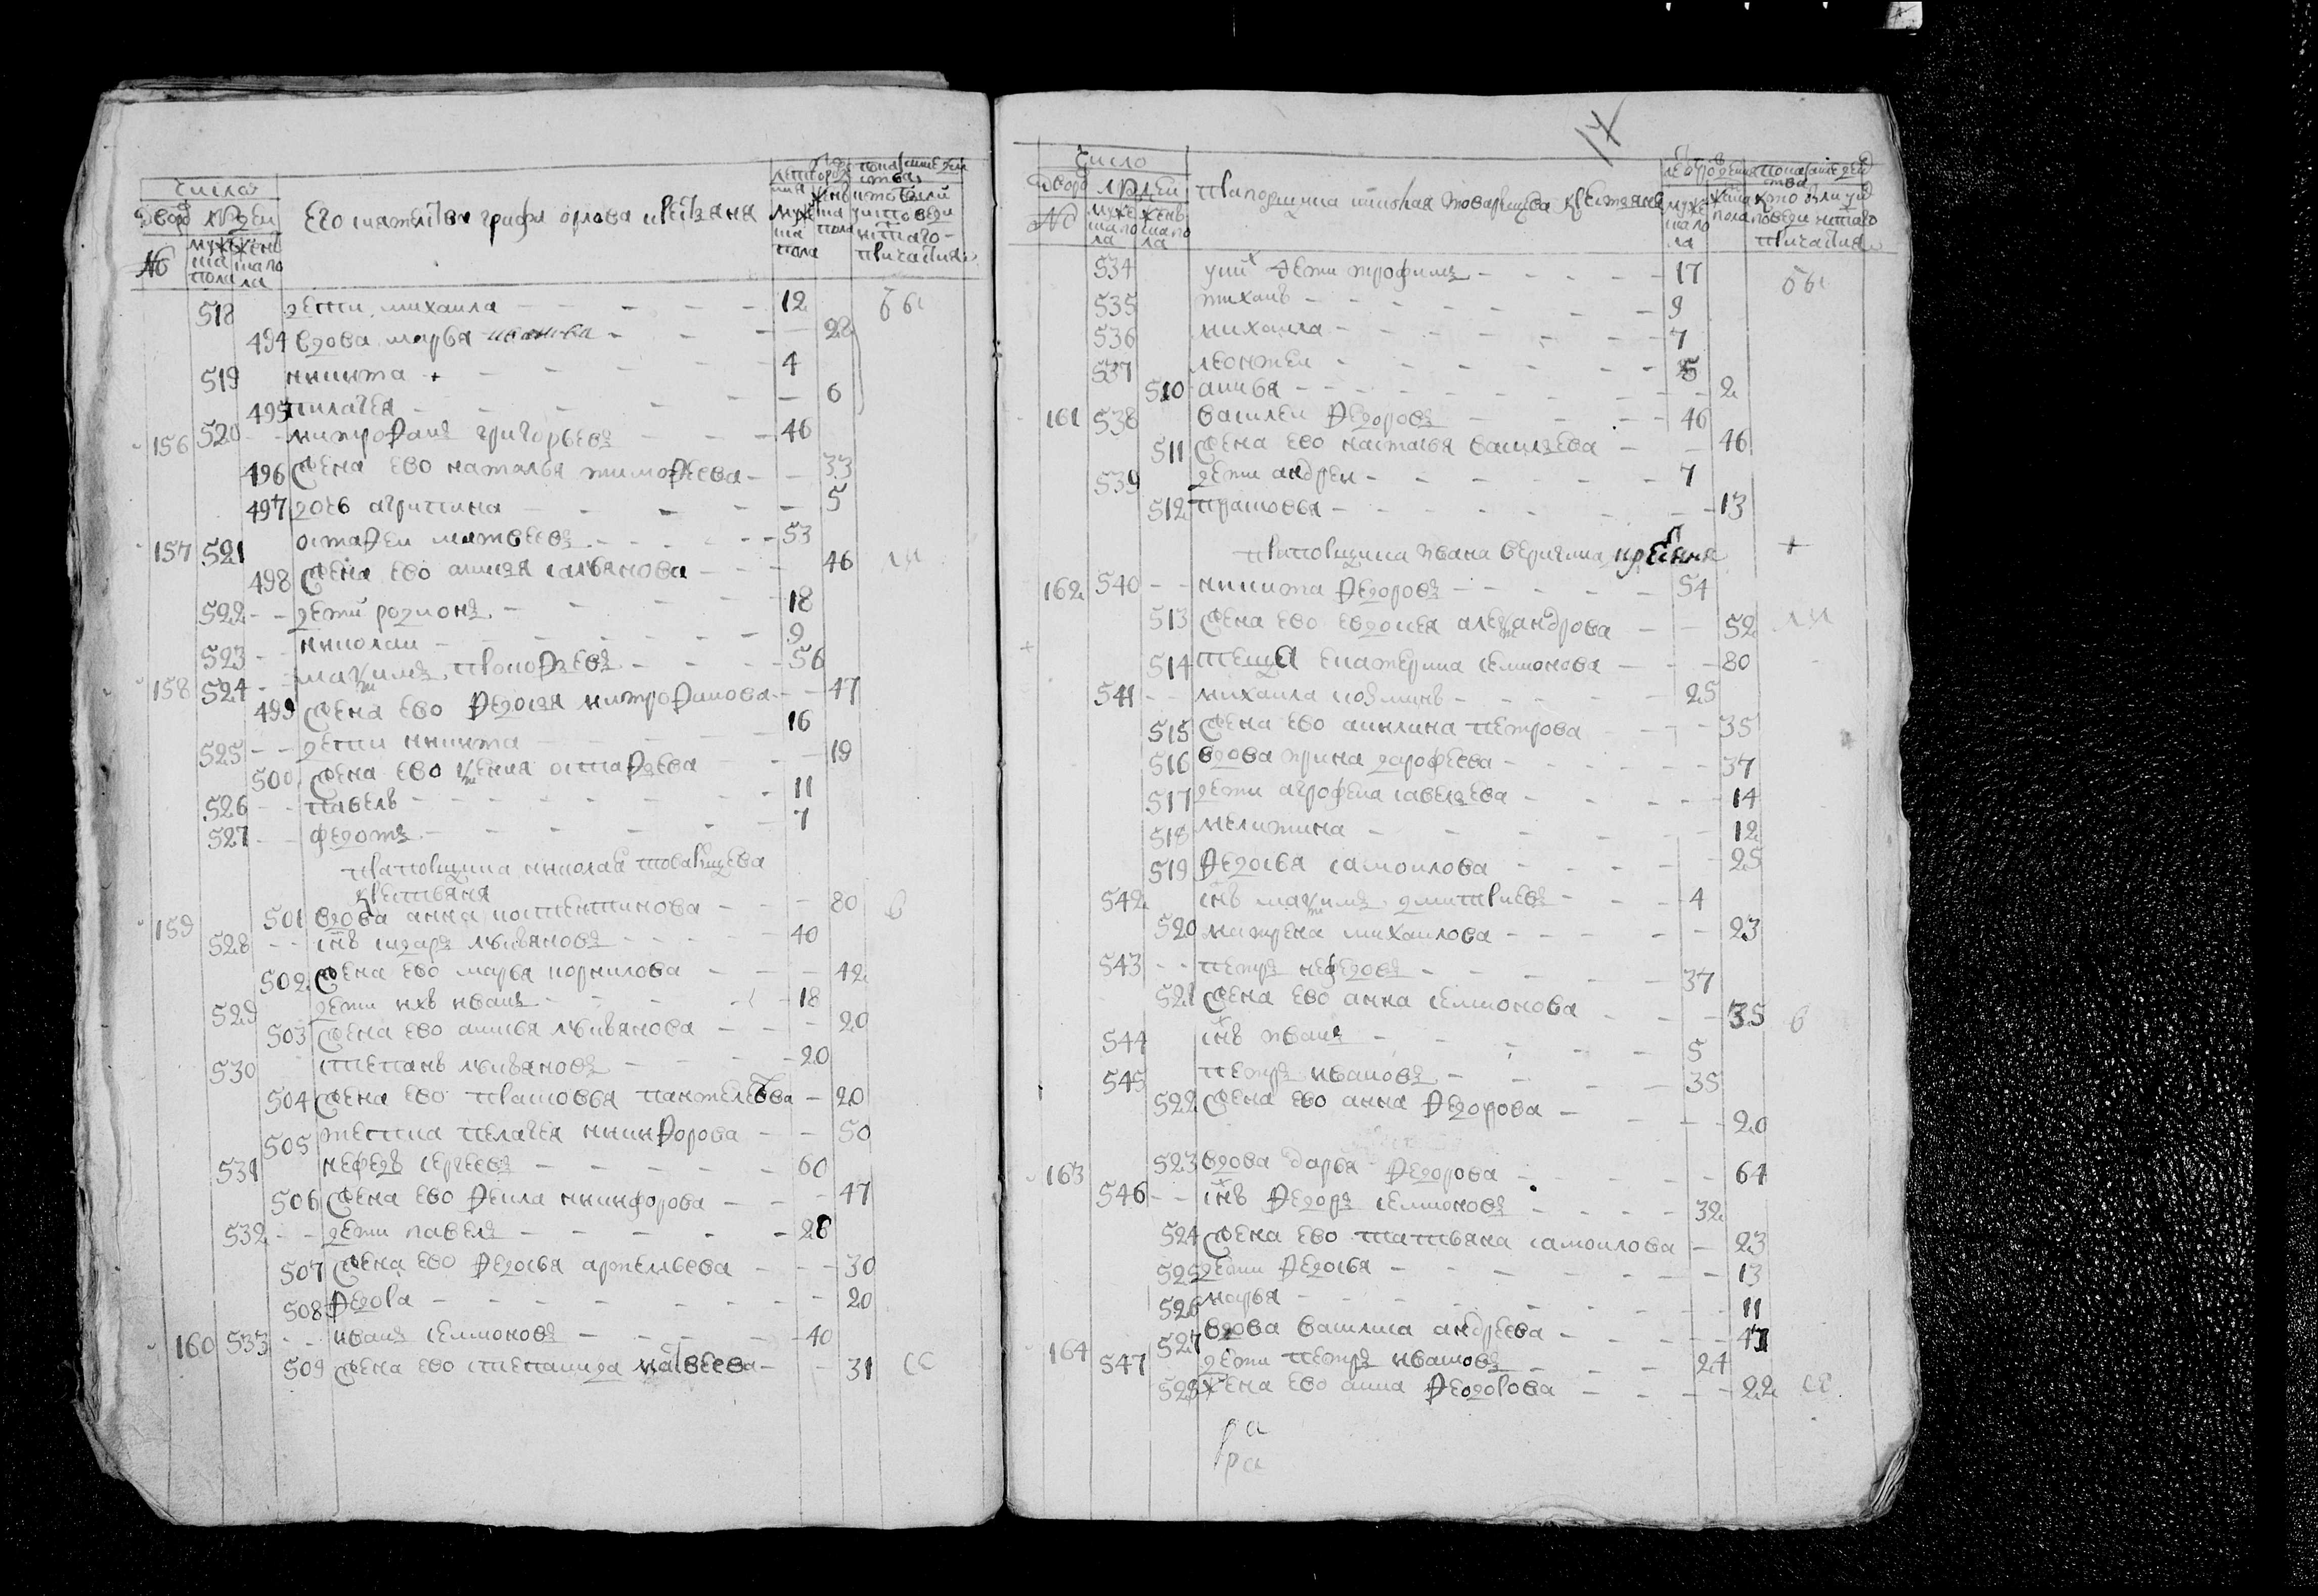 число
дворъ людей
№ мужеска пола женска пола
Его сиятельства графа орлова крестьяня
лета от рождения
мужеска пола женска пола
по показанию действа
кто были у исповеди и святаго причастия
518 дети михаила 12 бы
494 вдова марья иванова 28
519 никита + 4
495 пилагея 6
156 520 митрофанъ григорьевъ 46
496 жена ево наталья тимофеева 33
497 дочь агрипина 5
157 521 остафеи матвеевъ 53
498 жена ево аписья 46
522 дети родионъ 18
523 николаи 9
158 524 максимъ прокофьевъ 56
499 жена ево федосья митрофанова 47
525 дети никита 16
500 жена ево ксения остафьева 19
526 павелъ 11
527 федотъ 7
прапорщика николая товарищева
крестьяня
159 501 вдова анна костентинова 80 в
528 снъ лукьяновъ 40
502 жена ево марья корнилова 42
529 дети ихъ иванъ 18
503 жена ево лукьянова 20
530 степанъ лукьяновъ 20
504 жена ево прасковья пантелеева 20
505 тетка пелагея никифорова 50
531 нефедъ сергеевъ 60
506 жена ево фекла никифорова 47
532 дети павелъ 28
507 жена ево федосья артемьева 30
508 федора 20
160 533 иванъ семионовъ 40
509 жена ево степанида матвеева 31 се
17
число
дворъ людей
№ мужеска пола женска пола
прапорщика николая товарищева крестьяня
534 у них дети трофимъ 17 бы
535 тиханъ 9
536 михаила 7
537 леонтеи 5
510 2
161 538 василеи федоровъ 46
511 жена ево настасья васильева 46
539 дети андреи 7
512 прасковья 13
прапорщика ивана веригина крестьяня +
162 540 никита федоровъ 54
513 жена ево евдокея александрова 52
514 теща екатерина семионова 80
541 михаила козминъ 25
515 жена ево акилина петрова 35
516 вдова ирина дарофеева 37
517 дети агрофена савельева 14
518 мелитина 12
519 федосья самоилова 25
542 снъ максимъ дмитриевъ 4
520 матрена михаилова 23
543 петръ нефедовъ 37
521 жена ево анна семионова 35 в
544 снъ иванъ 5
545 петръ ивановъ 35
522 жена ево анна федорова 20
163 523 вдова дарья федорова 64
546 снъ федоръ семионовъ 32
524 жена ево татьяна самоилова 23
525 дети федосья 13
526 марья 11
164 527 вдова василиса андреева 47
547 дети петръ ивановъ 24
528 жена ево анна федорова 22 се
ра
ра